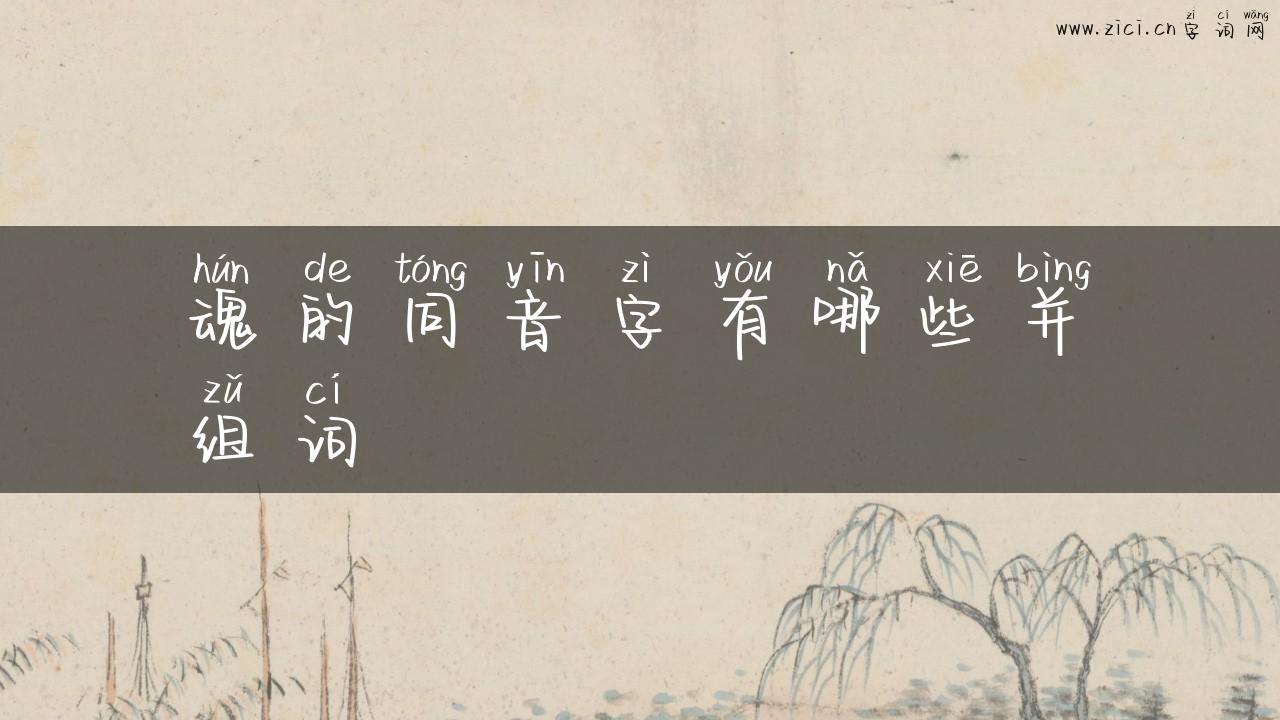 zì cí wǎng
www.zici.cn 字 词 网
hún de tóng yīn zì yǒu nǎ xiē bìng
魂 的 同 音 字 有 哪 些 并
zǔ cí
组 词